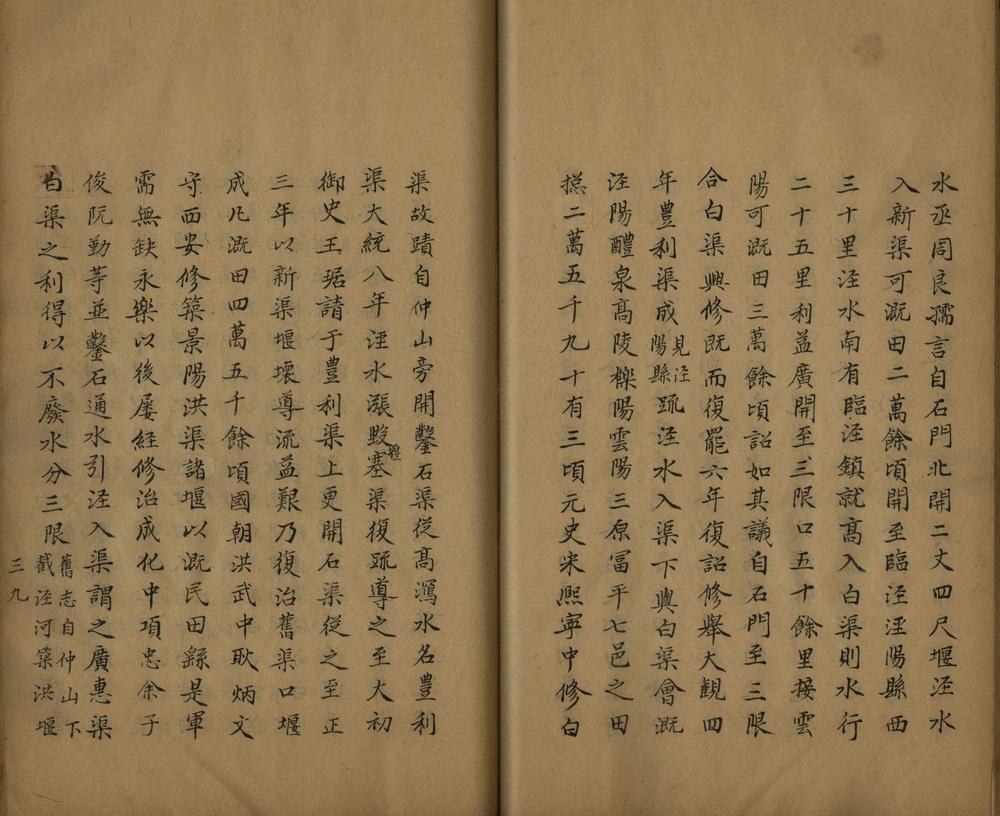 水丞周良孺言自石門北開二丈四尺堰涇水
入新渠可溉田二萬餘頃開至臨涇涇陽縣西
三十里涇水南有臨涇鎮就高入白渠則水行
二十五里利益廣開至三限口五十餘里接雲
陽可溉田三萬餘頃詔如其議自石門至三限
合白渠興修既而復罷六年復詔修舉大觀四
年豊利渠成見涇陽縣䟽涇水入渠下與白渠會溉
涇陽醴泉高陵櫟陽雲陽三原冨平七邑之田
揔二萬五千九十有三頃元史宋熈寧中修白
渠故蹟自仲山旁開鑿石渠從高瀉水名豊利
渠大統八年涇水漲毀堰塞渠復䟽導之至大初
御史王琚請于豊利渠上更開石渠從之至正
三年以新渠堰壞導流益艱乃復治舊渠口堰
成凡溉田四萬五千餘頃國朝洪武中耿炳文
守西安修築景陽洪渠諸堰以溉民田繇是軍
需無缺永樂以後屡經修治成化中項忠余子
俊阮勤等並鑿石通水引涇入渠謂之廣惠渠
白渠之利得以不廢水分三限舊志自仲山下截涇河築洪堰
三九